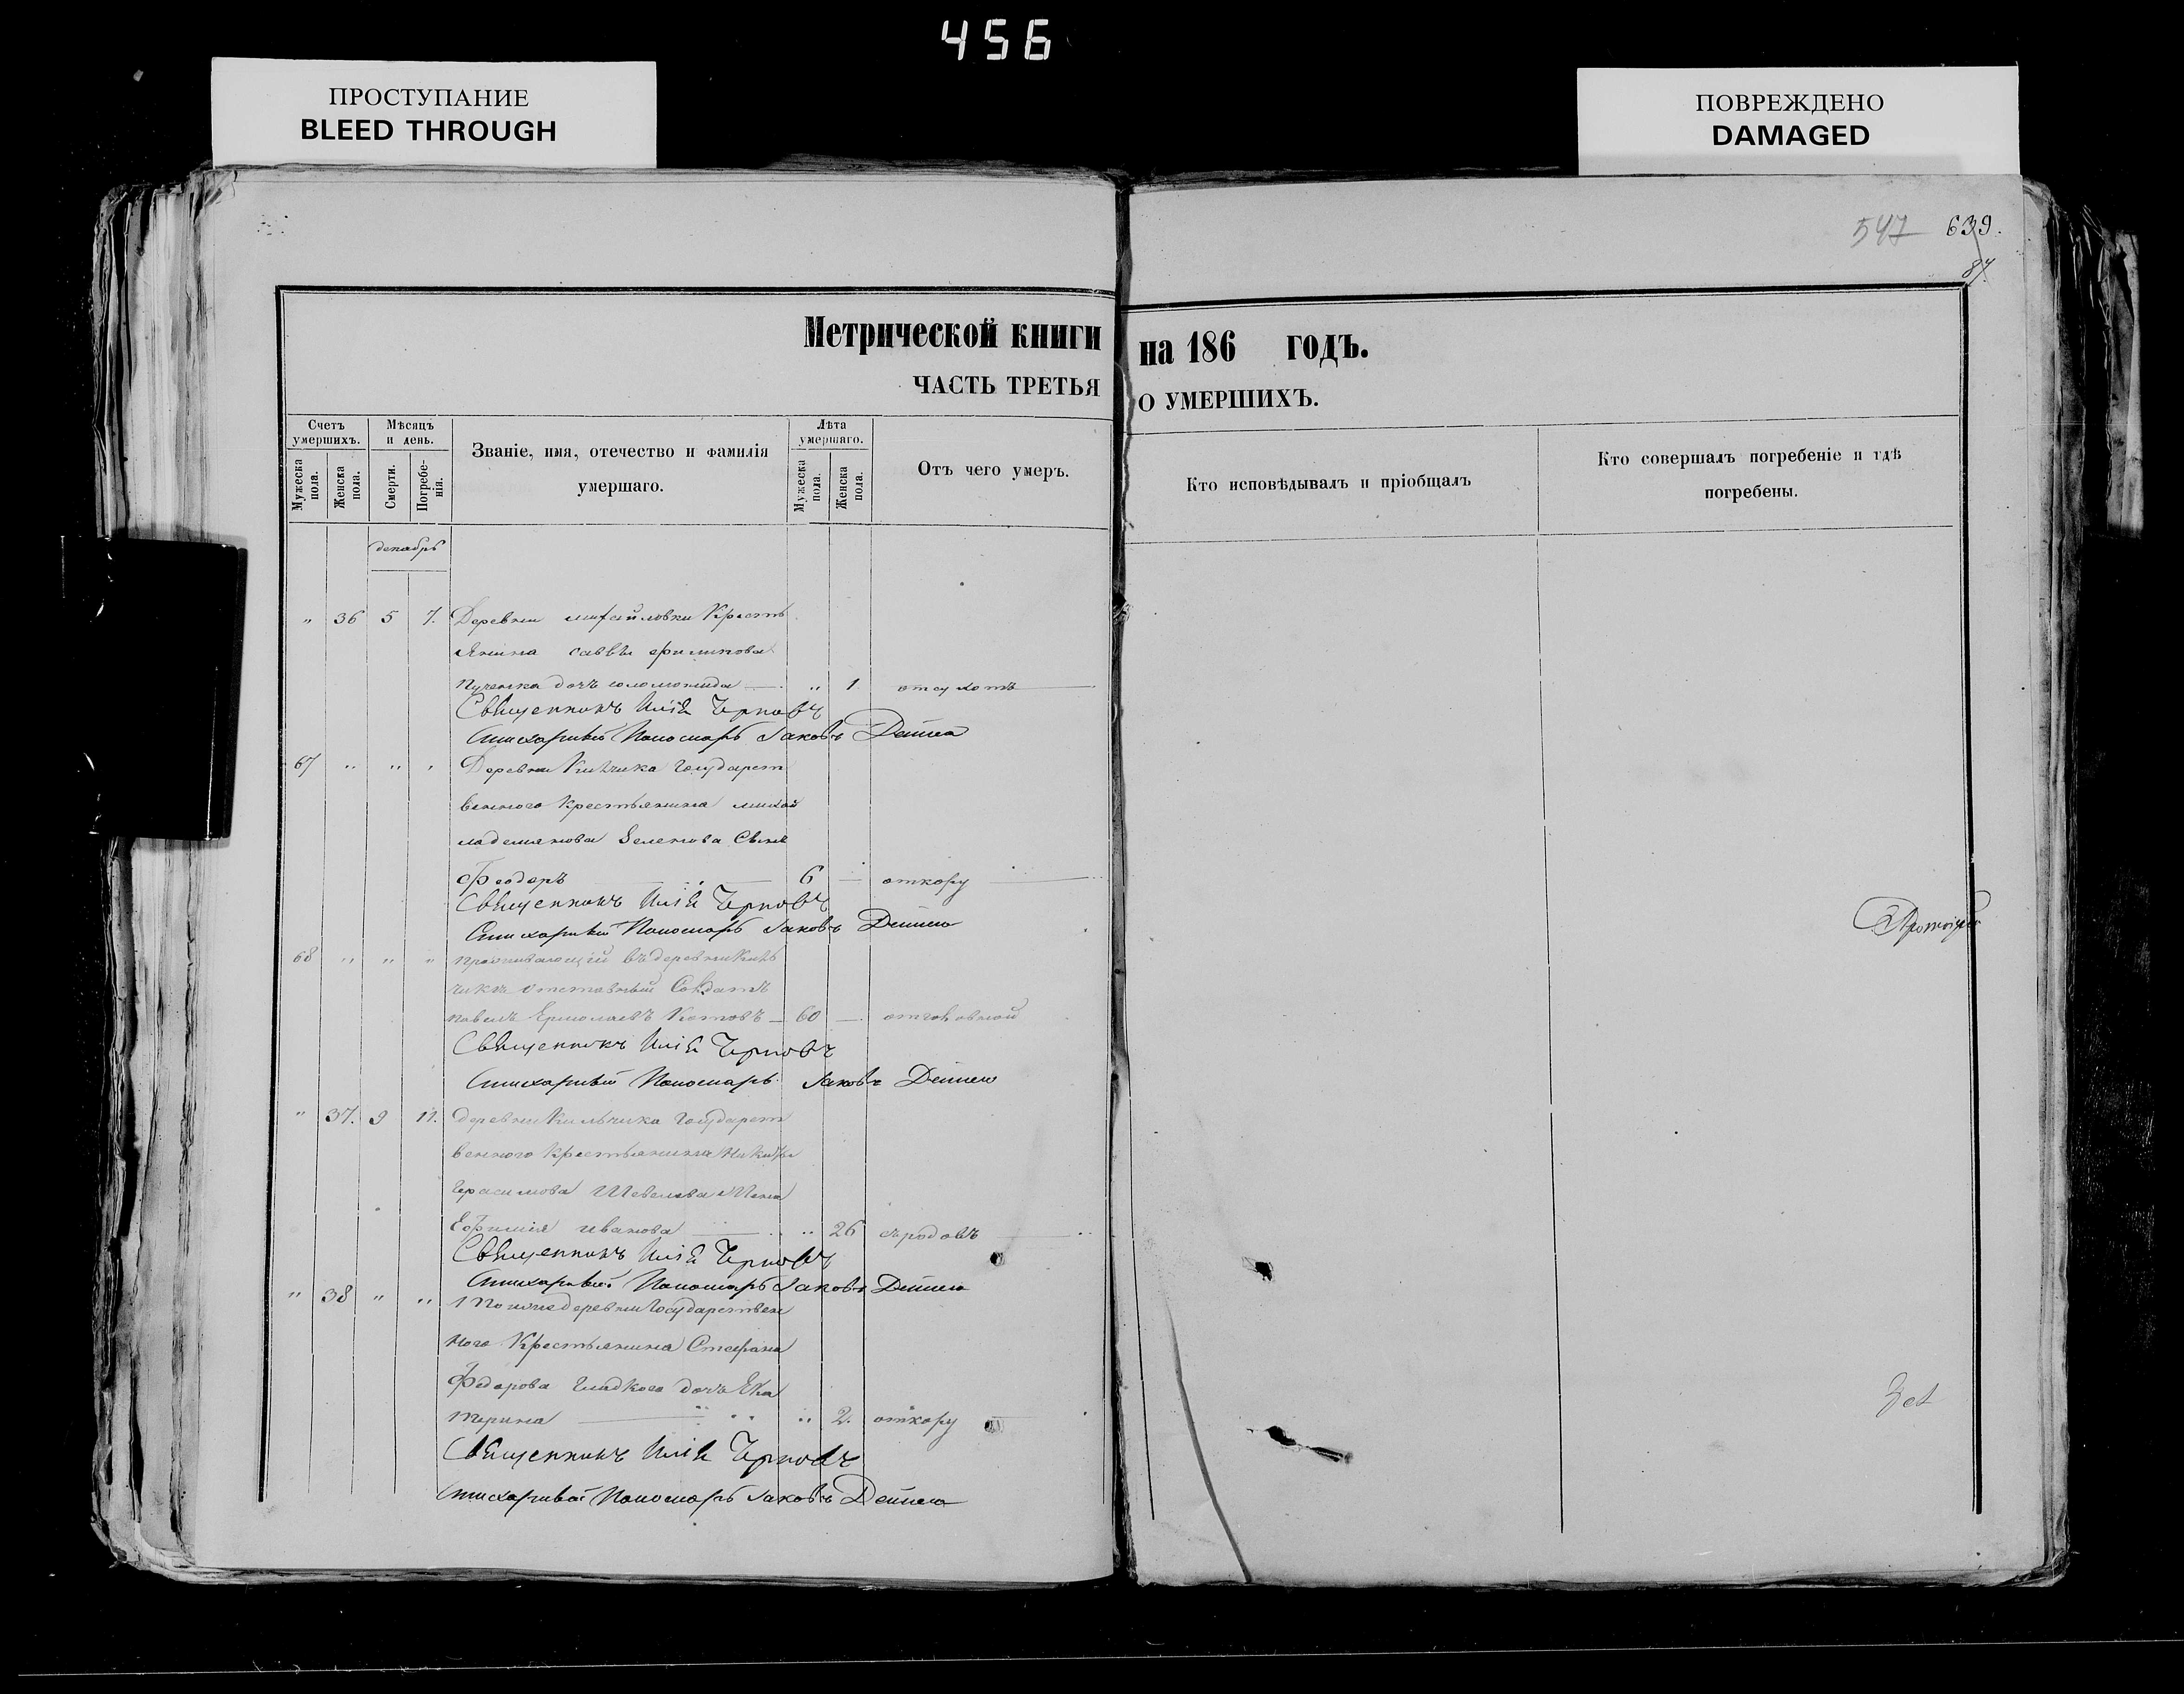 456
ПРОСТУПАНИЕ
BLEED THROUGH
ПОВРЕЖДЕНО
DAMAGED
547 639.
87
Метрической книги на 186 годъ.
ЧАСТЬ ТРЕТЬЯ О УМЕРШИХЪ.
Счетъ умершихъ.
Мужеска пола.
Женска пола.
Мѣсяцъ и день.
Смерти.
Погребенія.
Званіе, имя, отечество и фамилія
умершаго.
Лѣта умершаго.
Мужеска пола.
Женска пола.
Отъ чего умеръ.
Кто исповѣдывалъ и пріобщалъ
Кто совершалъ погребеніе и гдѣ
погребены.
декабрь
" 36 5 7. Деревни михайловки Кресть
янина саввы филипова
дочь " 1 отсухотъ
Священникъ Илія Черновъ
Стихарный Пономарь Іаковъ
67 " " " Деревни Кильчика Государст
веннаго Крестьянина михай
ла демянова Зеленова Сынъ
Феодоръ 6 откору
Священникъ Илія Черновъ
Стихарный Пономарь Іаковъ
68 " " " проживающій въ деревни Киль
чикъ отставный Солдатъ
павелъ Ермолаевъ 60 отголовной
Священникъ Илія Черновъ
Стихарный Пономарь Іаковъ
" 37. 9 11. деревни Кильчика Государст
веннаго Крестьянина Никиты
Герасимова Шевелева Жена
Ефимія иванова " 26 съродовъ
Священникъ Илія Черновъ
Стихарный Пономарь Іаковъ
" 38 " " деревни Государствен
наго Крестьянина Стефана
Федорова гладкого дочь Ека
терина " 2. откору
Священникъ Илія Черновъ
Стихарный Пономарь Іаковъ